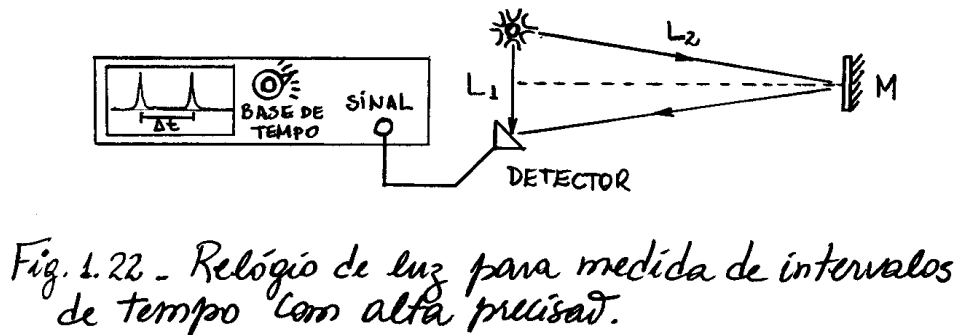 L₂
L₁
M
Δt
BASE DE
TEMPO
SINAL
DETECTOR
Fig. 1.22 - Relógio de luz para medida de intervalos
de tempo com alta precisão.